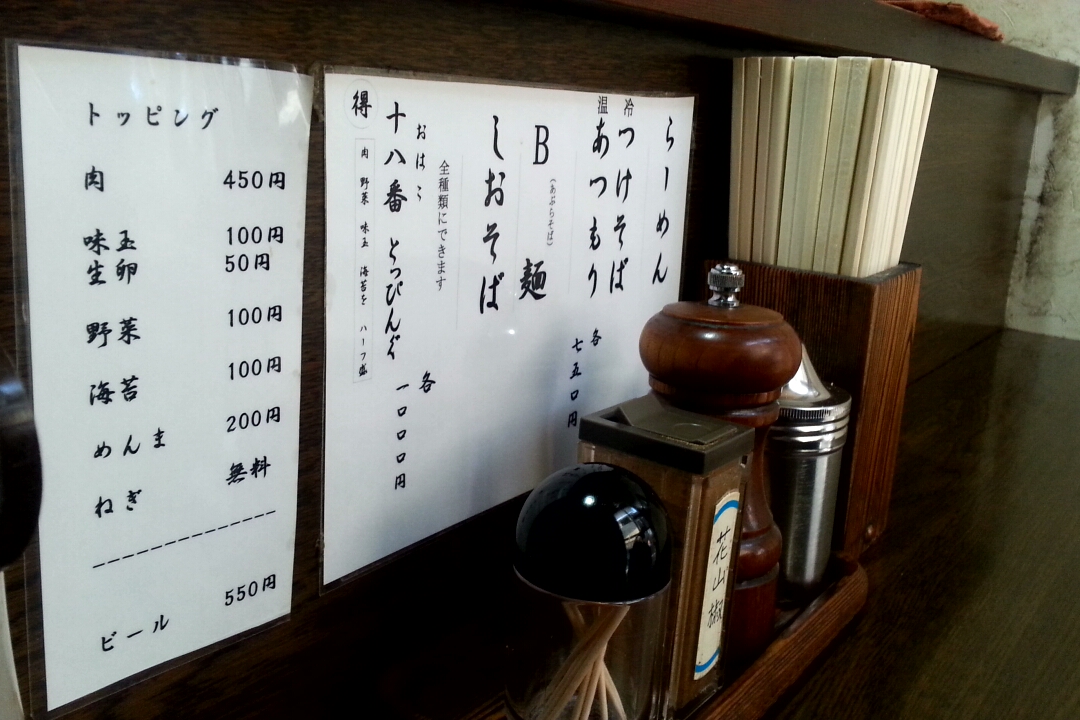 トッピング
肉 450円
味玉 100円
生卵 50円
野菜 100円
海苔 100円
めんま 200円
ねぎ 無料
ビール 550円
らーめん
冷 つけそば
温 あつもり
各 七五〇円
B麺
(あぶらそば)
しおそば
全種類にできます
おはこ
十八番 とっぴんぐ 各 一〇〇〇円
得
肉 野菜 味玉 海苔を ハーフ盛
花山椒